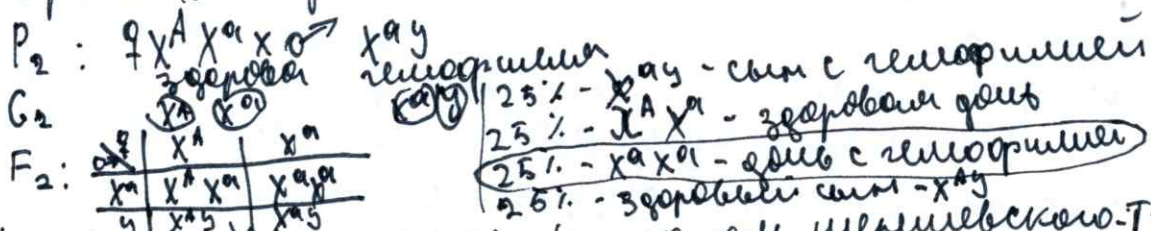 P₂ : ♀ X^A X^a x ♂ X^a y
здорова гемофилия
G₂ X^A X^a X^a y
F₂: ♂ ♀ X^A X^a
X^a X^A X^a X^a X^a
y X^A y X^a y
25% - X^a y - сын с гемофилией
25% - X^A X^a - здоровая дочь
25% - X^a X^a - дочь с гемофилией
25% - здоровый сын - X^A y
шерешевского-Т